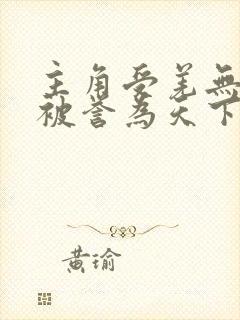 主角受羞無
被誉為天下
黄瑜